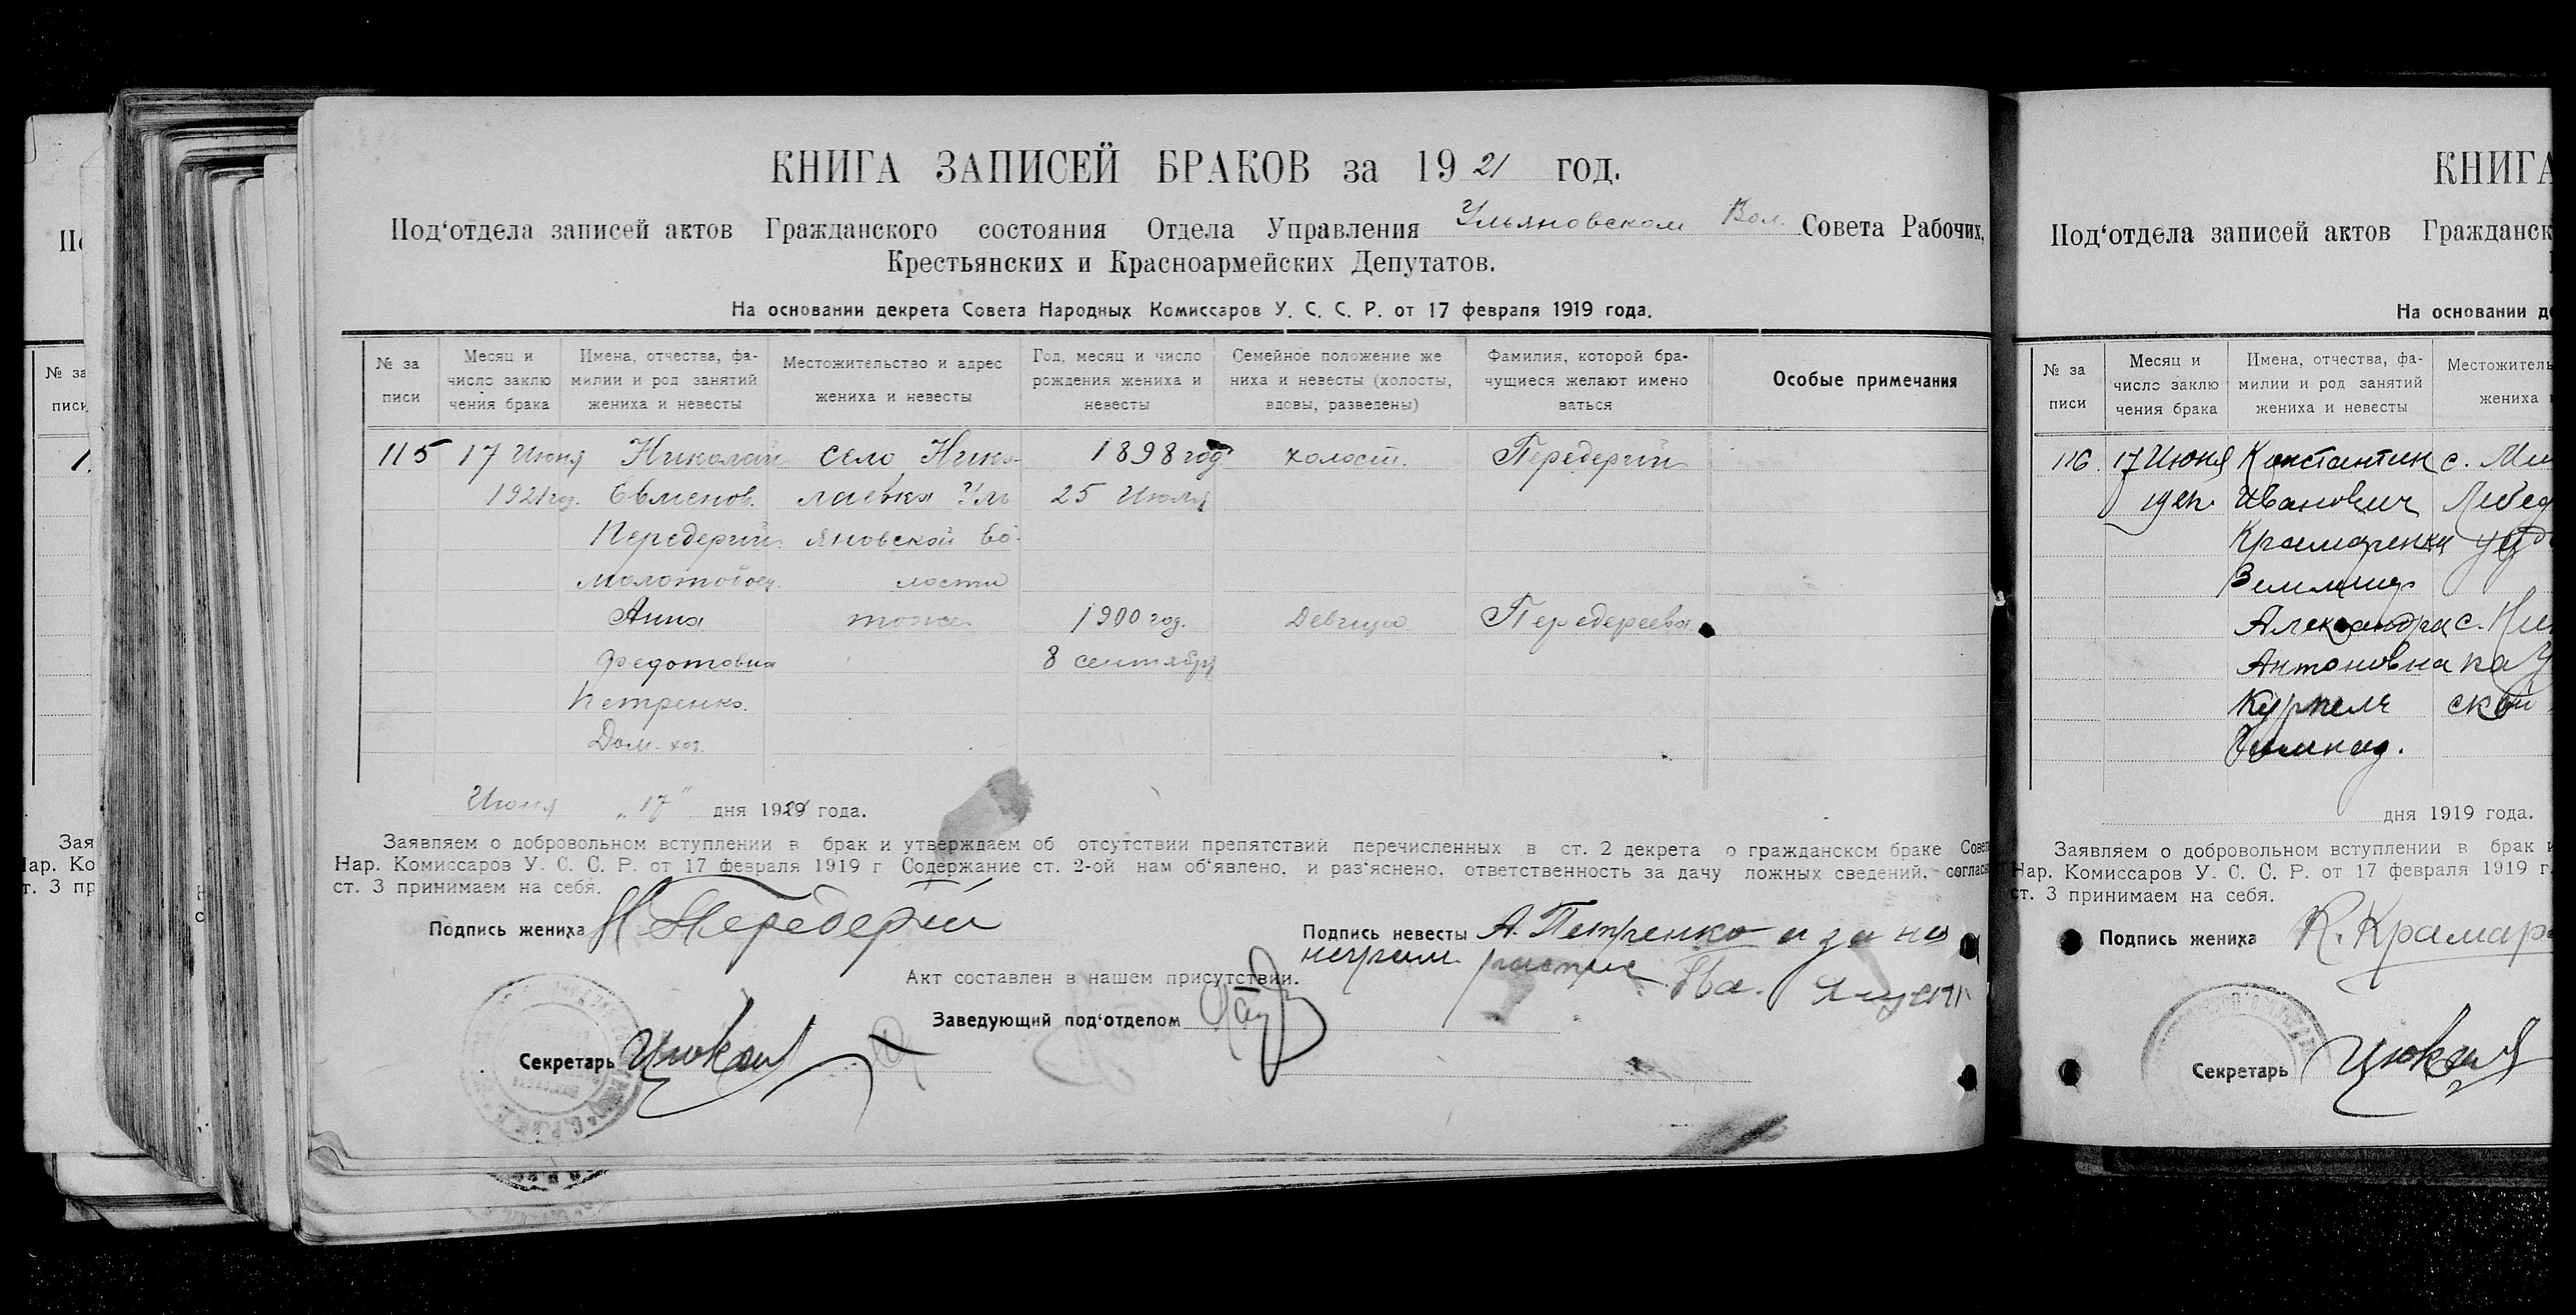 КНИГА ЗАПИСЕЙ БРАКОВ за 1921 год.
Под'отдела записей актов Гражданского состояния Отдела Управления Ульяновском Вол. Совета Рабочих,
Крестьянских и Красноармейских Депутатов.
На основании декрета Совета Народных Комиссаров У. С. С. Р. от 17 февраля 1919 года.
№ за
писи
Месяц и
число заклю
чения брака
Имена, отчества, фа-
милии и род занятий
жениха и невесты
Местожительство и адрес
жениха и невесты
Год, месяц и число
рождения жениха и
невесты
Семейное положение же
ниха и невесты (холосты,
вдовы, разведены)
Фамилия, которой бра-
чущиеся желают имено
ваться
Особые примечания
115 17 Июня Николай село Нико- 1898 год холост. Передерий
1921 год. Евменов. лаевка Уль 25 Июля
Передерий яновской во-
молотобоец. лости
Анна тоже 1900 год. Девица Передереева
Федотовна 8 сентября
Петренко.
Дом. хоз.
Июня "17" дня 1921 года.
Заявляем о добровольном вступлении в брак и утверждаем об отсутствии препятствий перечисленных в ст. 2 декрета о гражданском браке Совета
Нар. Комиссаров У. С. С. Р. от 17 февраля 1919 г Содержание ст. 2-ой нам об'явлено, и раз'яснено, ответственность за дачу ложных сведений, согласно
ст. 3 принимаем на себя.
Подпись жениха Н Передерий
Подпись невесты А. Петренко а за не
неграм. распис
Акт составлен в нашем присутствии.
Заведующий под'отделом
Секретарь
КНИГА
Под'отдела записей актов Гражданск
На основании де
№ за
писи
Месяц и
число заклю
чения брака
Имена, отчества, фа-
милии и род занятий
жениха и невесты
Местожитель
жениха и
116. 17 Июня Константин с. Ми
192 Иванович Лебед
Крамаренко
Александра с. Ни
Антоновна ка У
Курпель ской
дня 1919 года.
Заявляем о добровольном вступлении в брак и
Нар. Комиссаров У. С. С. Р. от 17 февраля 1919 г.
ст. 3 принимаем на себя.
Подпись жениха К. Крамаре
Секретарь